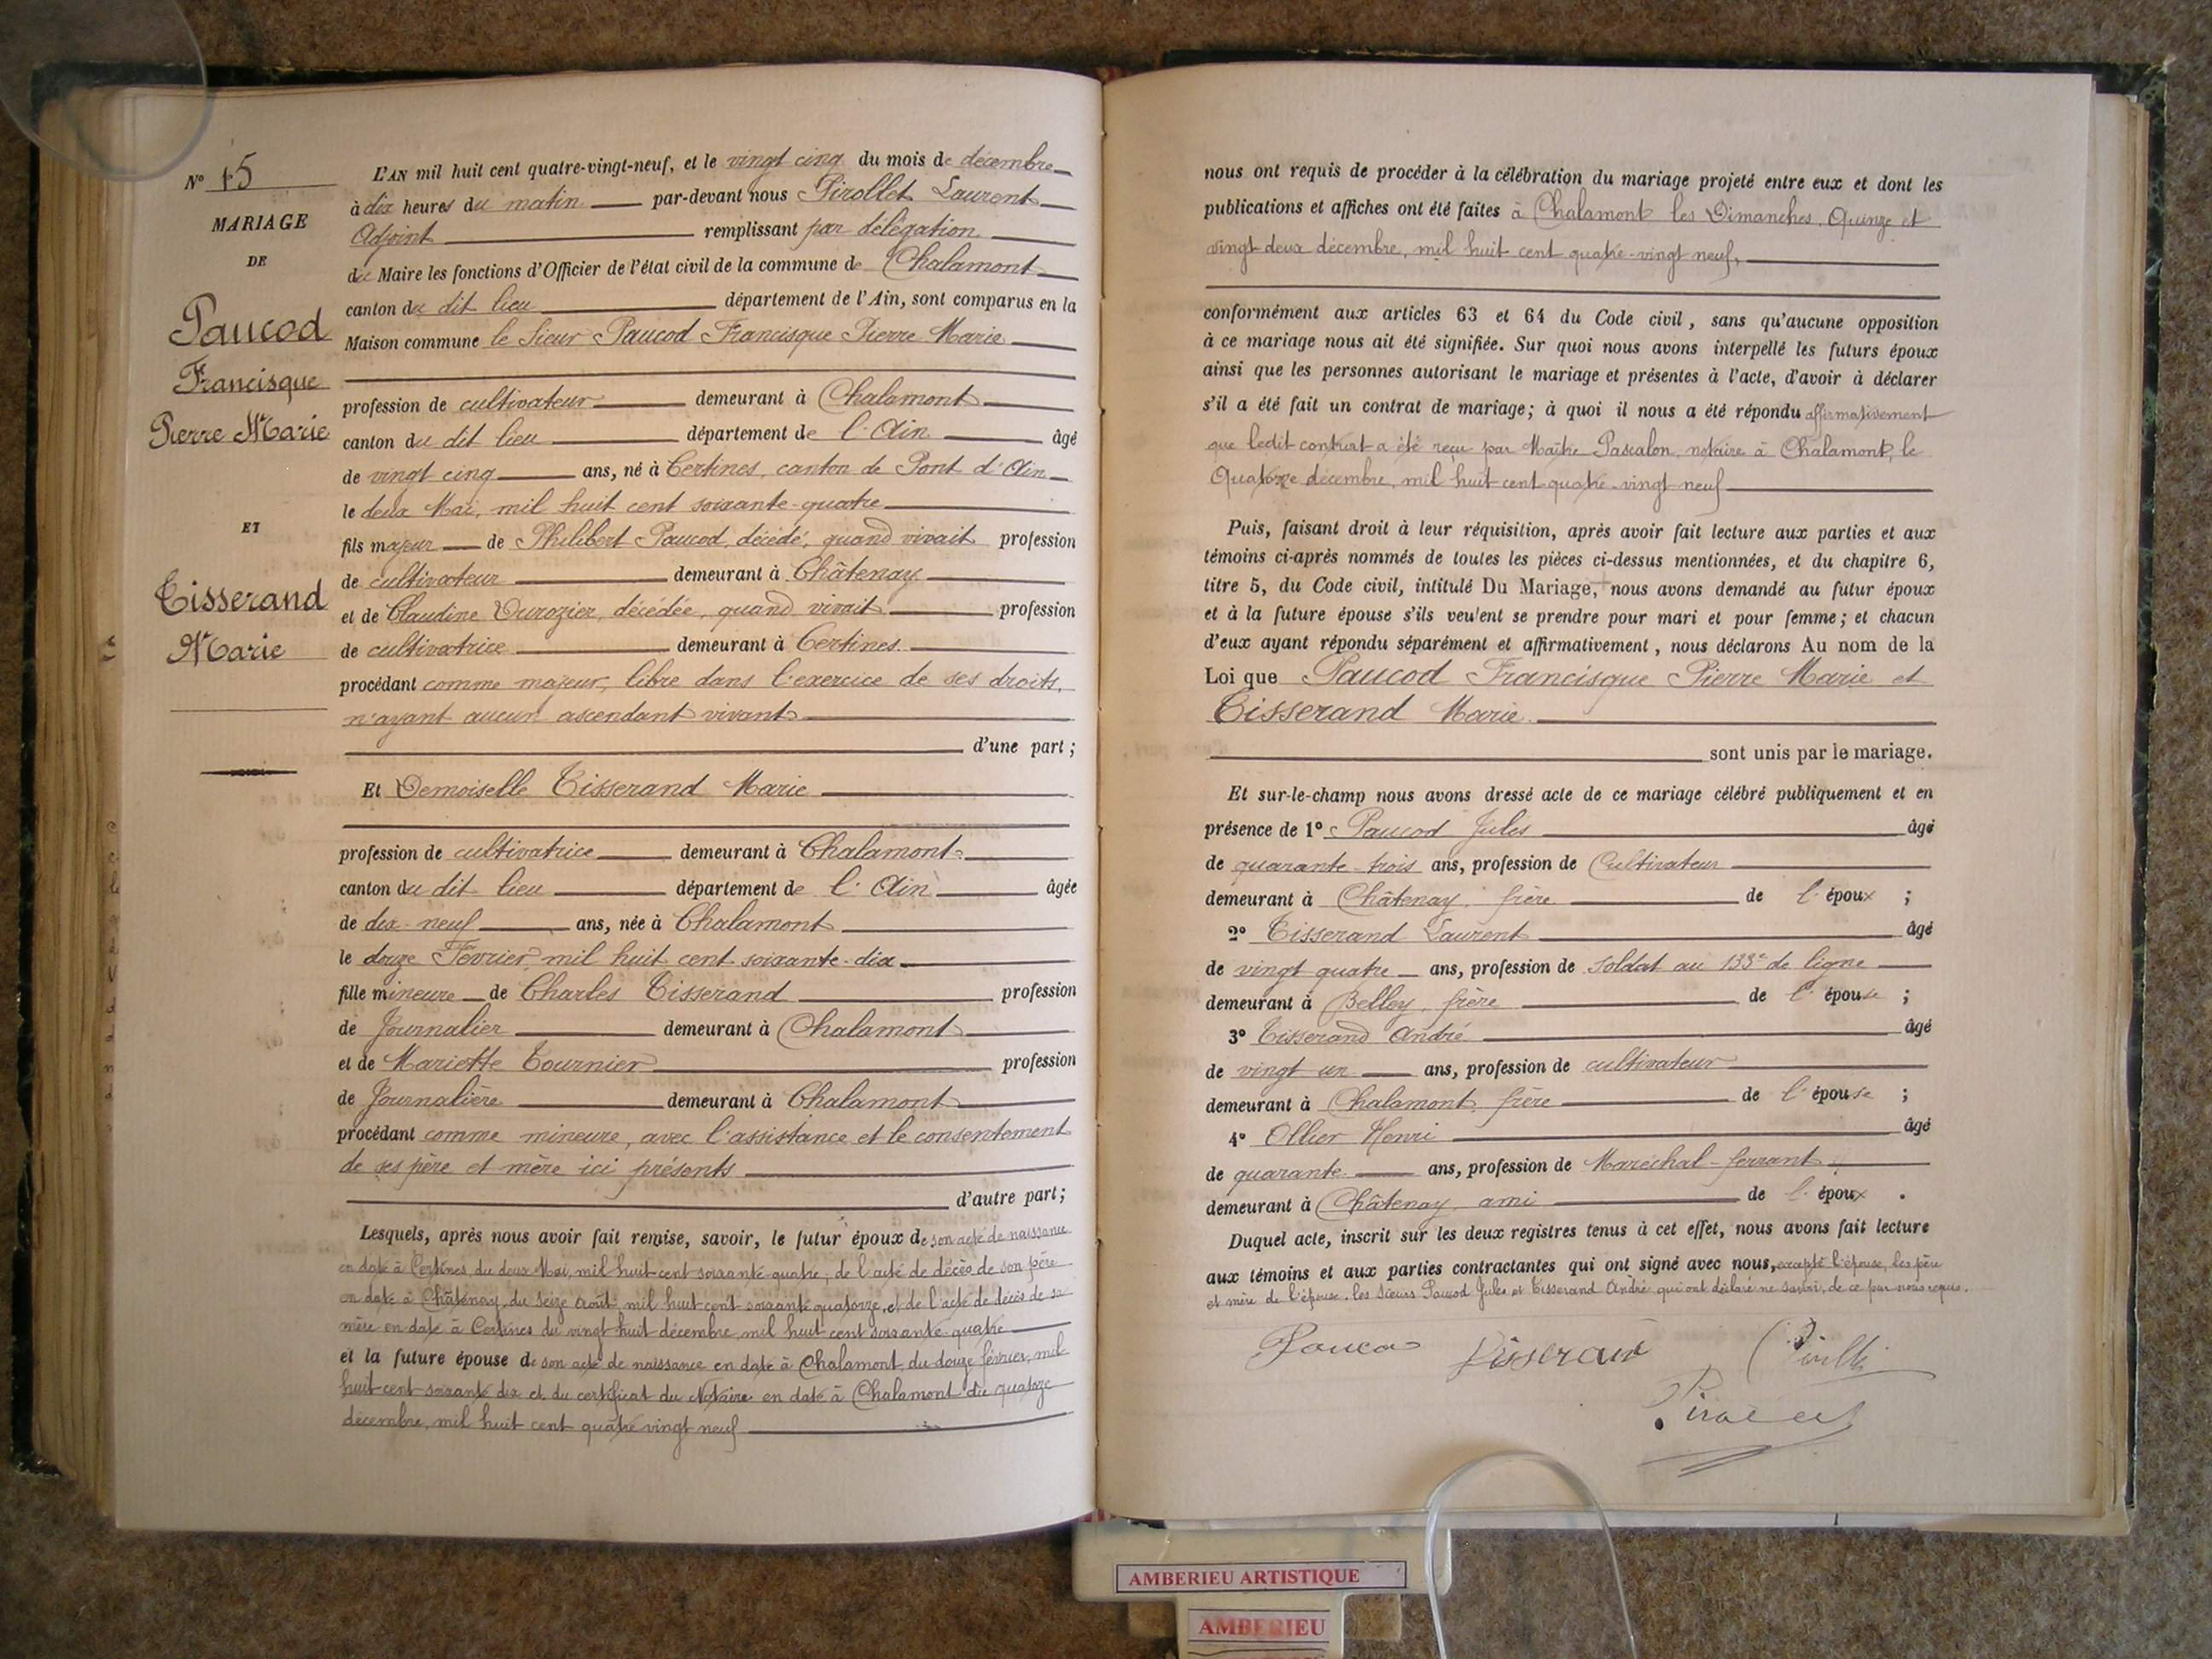 N° 15
MARIAGE
DE
Paucod
Francisque
Pierre Marie
ET
Tisserand
Marie
L'AN mil huit cent quatre-vingt-neuf, et le vingt cinq du mois de décembre
à dix heures du matin par-devant nous Pirollet Laurent
Adjoint remplissant par délégation
du Maire les fonctions d'Officier de l'état civil de la commune de Chalamont
canton du dit lieu département de l'Ain, sont comparus en la
Maison commune le Sieur Paucod Francisque Pierre Marie
profession de cultivateur demeurant à Chalamont
canton du dit lieu département de l'Ain âgé
de vingt cinq ans, né à Certines, canton de Pont d'Ain
le deux Mai, mil huit cent soixante-quatre
fils majeur de Philibert Paucod, décédé, quand vivait profession
de cultivateur demeurant à Châtenay
et de Claudine Durozier, décédée, quand vivait profession
de cultivatrice demeurant à Certines
procédant comme majeur, libre dans l'exercice de ses droits,
n'ayant aucun ascendant vivant
d'une part ;
Et Demoiselle Tisserand Marie
profession de cultivatrice demeurant à Chalamont
canton du dit lieu département de l'Ain âgée
de dix-neuf ans, née à Chalamont
le douze Février mil huit cent soixante-dix
fille mineure de Charles Tisserand profession
de Journalier demeurant à Chalamont
et de Mariette Tournier profession
de Journalière demeurant à Chalamont
procédant comme mineure, avec l'assistance et le consentement
de ses père et mère ici présents
d'autre part ;
Lesquels, après nous avoir fait remise, savoir, le futur époux de son acte de naissance
en date à Certines du deux Mai, mil huit cent soixante quatre, de l'acte de décès de son père
en date à Châtenay, du seize Août mil huit cent soixante quatorze, et de l'acte de décès de sa
mère en date à Certines du vingt huit décembre mil huit cent soixante-quatre
et la future épouse de son acte de naissance en date à Chalamont, du douze février, mil
huit cent soixante dix et du certificat du Notaire en date à Chalamont du quatorze
décembre, mil huit cent quatre vingt neuf
nous ont requis de procéder à la célébration du mariage projeté entre eux et dont les
publications et affiches ont été faites à Chalamont les Dimanches, Quinze et
vingt deux décembre, mil huit cent quatre-vingt neuf,
conformément aux articles 63 et 64 du Code civil, sans qu'aucune opposition
à ce mariage nous ait été signifiée. Sur quoi nous avons interpellé les futurs époux
ainsi que les personnes autorisant le mariage et présentes à l'acte, d'avoir à déclarer
s'il a été fait un contrat de mariage ; à quoi il nous a été répondu affirmativement
que ledit contrat a été reçu par Maître Pascalon, notaire à Chalamont, le
Quatorze décembre, mil huit cent quatre-vingt neuf
Puis, faisant droit à leur réquisition, après avoir fait lecture aux parties et aux
témoins ci-après nommés de toutes les pièces ci-dessus mentionnées, et du chapitre 6,
titre 5, du Code civil, intitulé Du Mariage, nous avons demandé au futur époux
et à la future épouse s'ils veulent se prendre pour mari et pour femme ; et chacun
d'eux ayant répondu séparément et affirmativement, nous déclarons Au nom de la
Loi que Paucod Francisque Pierre Marie et
Tisserand Marie
sont unis par le mariage.
Et sur-le-champ nous avons dressé acte de ce mariage célébré publiquement et en
présence de 1° Paucod Jules âgé
de quarante-trois ans, profession de Cultivateur
demeurant à Châtenay, frère de l'époux ;
2° Tisserand Laurent âgé
de vingt quatre ans, profession de Soldat au 133e de ligne
demeurant à Belley, frère de l'épouse ;
3° Tisserand André âgé
de vingt un ans, profession de cultivateur
demeurant à Chalamont, frère de l'épouse ;
4° Ollier Henri âgé
de quarante ans, profession de Maréchal-ferrant
demeurant à Châtenay, ami de l'époux .
Duquel acte, inscrit sur les deux registres tenus à cet effet, nous avons fait lecture
aux témoins et aux parties contractantes qui ont signé avec nous, excepté l'épouse, les père
et mère de l'épouse, les sieurs Paucod Jules et Tisserand André qui ont déclaré ne savoir, de ce par nous requis.
Paucod Tisserand
AMBERIEU ARTISTIQUE
AMBERIEU